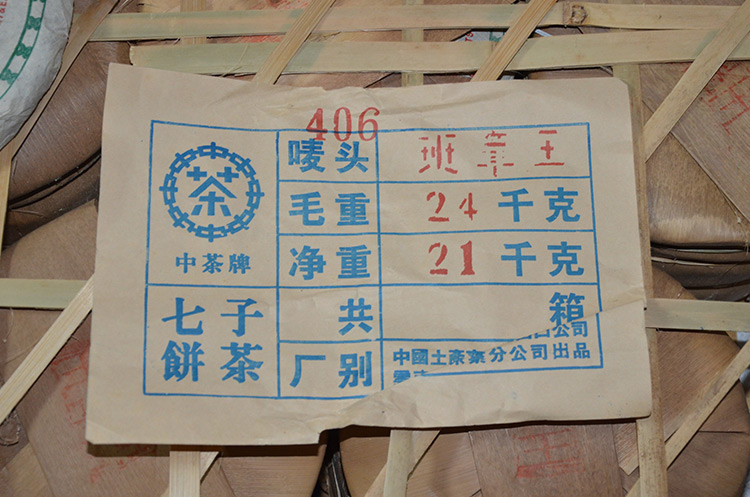 406
茶
中茶牌
七子
餅茶
唛头 班章王
毛重 24千克
净重 21千克
共 箱
厂别
口公司
中國土 分公司出品